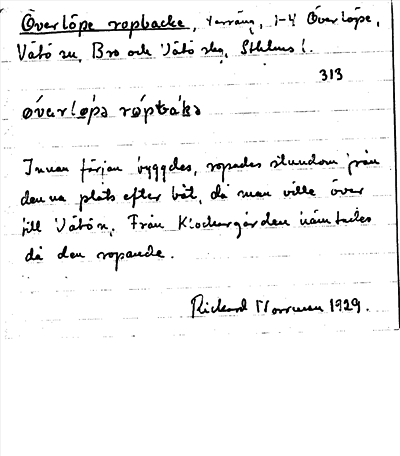 Överlöpe ropbacke, terräng, 1-4 Överlöpe,
Vätö sn, Bro och Vätö skg, Sthlms l.
313
ø̀vərlø̀pə rópbàkə
Innan färjan byggdes, ropades stundom från
denna plats efter båt, då man ville över
till Vätön. Från Klockargården hämtades
då den ropande.
Rickard Norrman 1929.